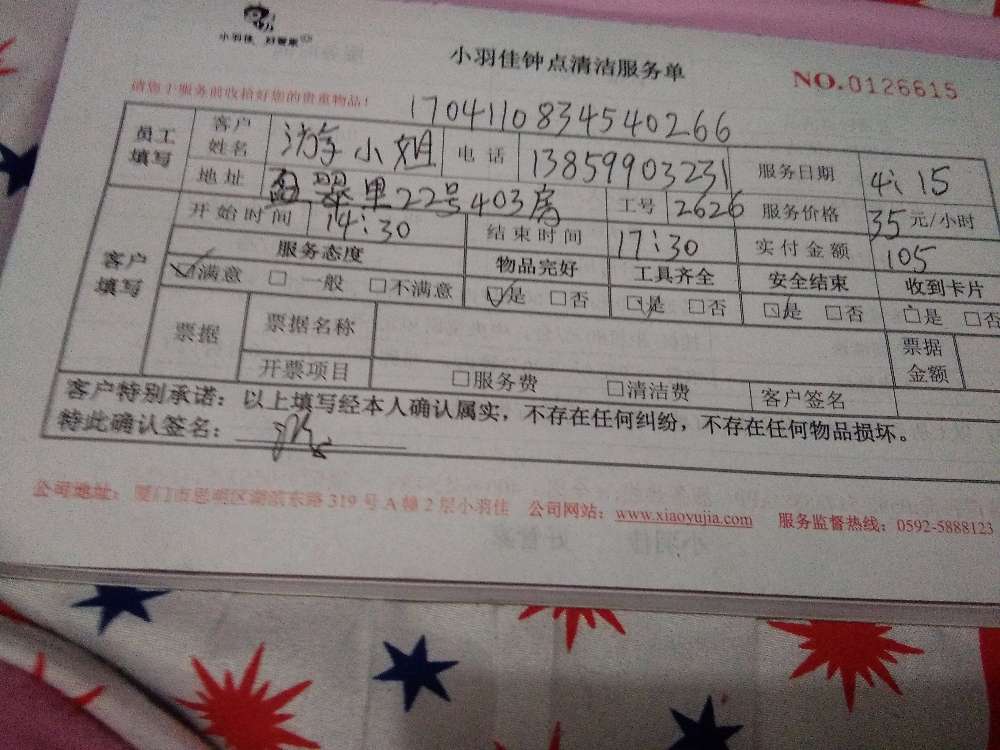 小羽佳 好管家
小羽佳钟点清洁服务单
NO.0126615
请您于服务前收拾好您的贵重物品!
1704110834540266
员工填写 客户姓名 游小姐 电话 13859903231 服务日期 4: 15
地址 翠里22号403房 工号 2626 服务价格 35元/小时
开始时间 14:30 结束时间 17:30 实付金额 105
客户填写 服务态度 物品完好 工具齐全 安全结束 收到卡片
☑满意 □一般 □不满意 ☑是 □否 ☑是 □否 ☑是 □否 □是 □否
票据 票据名称 票据金额
开票项目 □服务费 □清洁费 客户签名
客户特别承诺:以上填写经本人确认属实,不存在任何纠纷,不存在任何物品损坏。
特此确认签名:
公司地址:厦门市思明区湖滨东路319号A幢2层小羽佳 公司网站:www.xiaoyujia.com 服务监督热线:0592-5888123